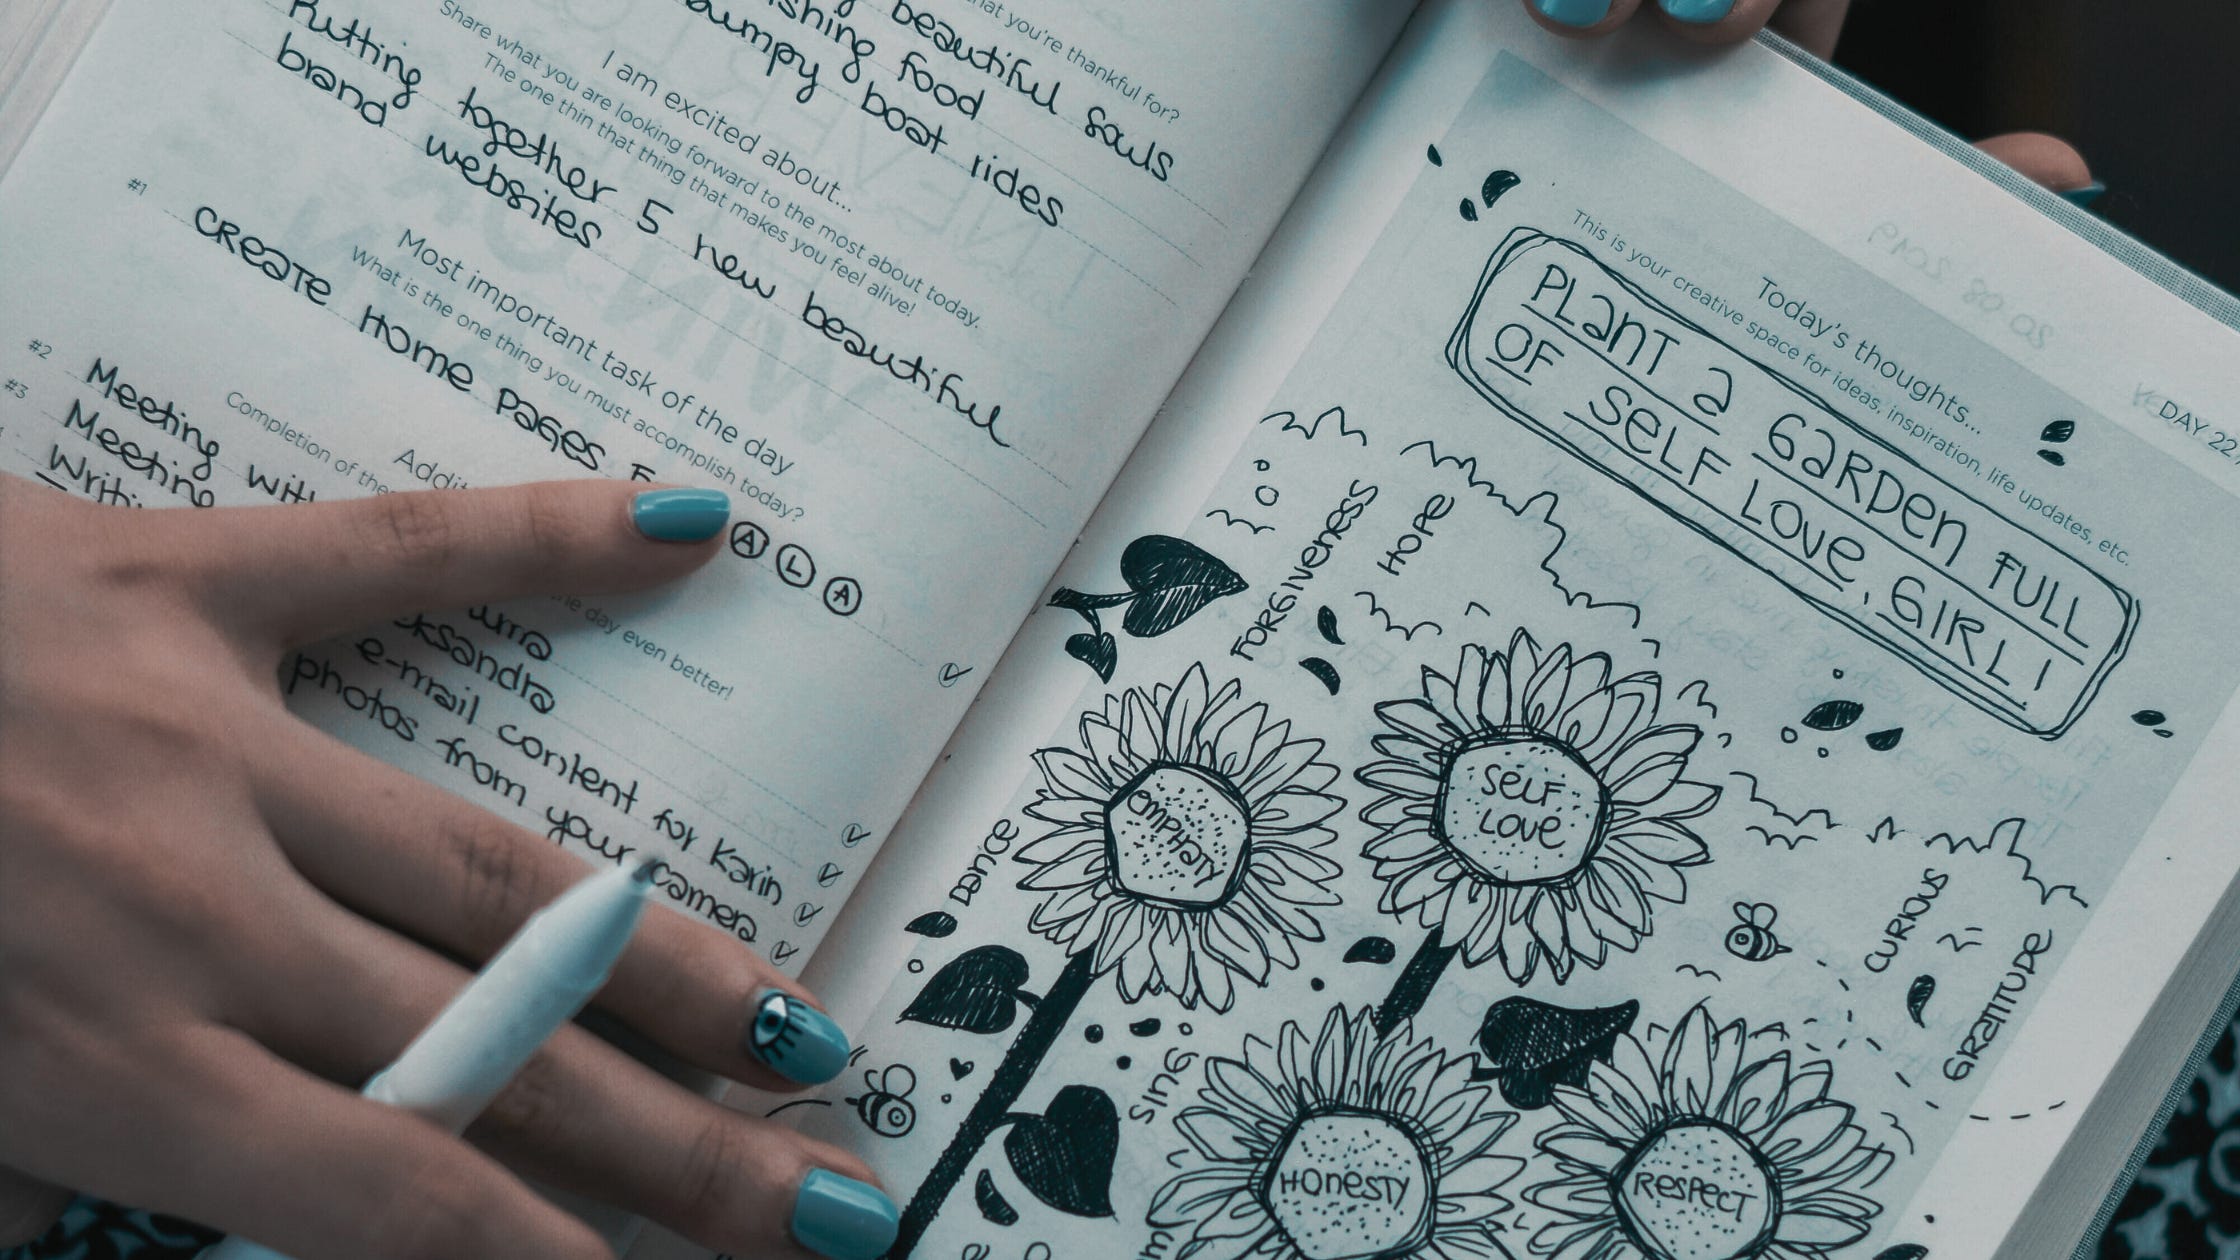 hat you're thankful for?
beautiful souls
shing food
bumpy boat rides
I am excited about...
Share what you are looking forward to the most about today.
The one thin that thing that makes you feel alive!
Putting together 5 new beautiful
brand websites
Most important task of the day
What is the one thing you must accomplish today?
#1
CREATE HOME PAGES F
A L A
Addit
Completion of the
he day even better!
#2
Meeting with
#3
Meeting
Writi
ksandra
e-mail content for Karin
photos from your camera
20 08 2019
DAY 22
Today's thoughts...
This is your creative space for ideas, inspiration, life updates, etc.
PLANT a GARDEN FULL
OF SELF LOVE, GIRL!
FORGIVENESS
HOPE
EMPHATY
SELF
LOVE
DANCE
CURIOUS
GRATITUDE
SING
HONESTY
RESPECT